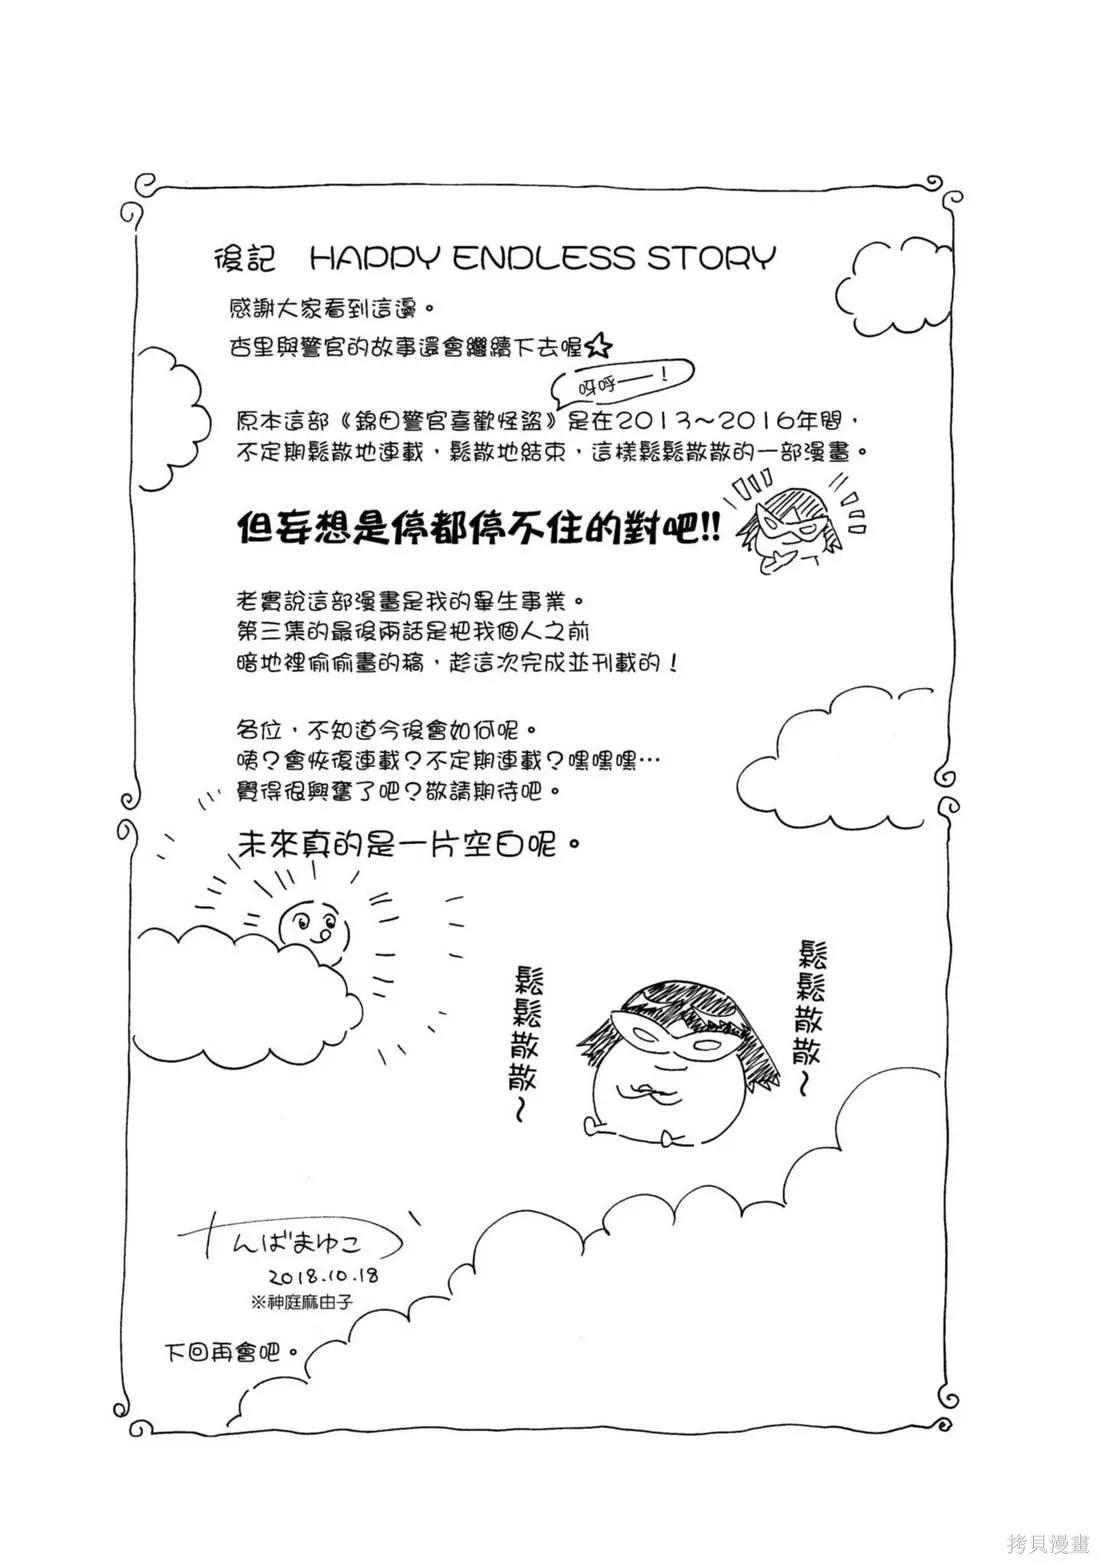 後記 HAPPY ENDLESS STORY
感謝大家看到這邊。
杏里與警官的故事還會繼續下去喔☆
呀呼——！
原本這部《錦田警官喜歡怪盜》是在2013～2016年間，
不定期鬆散地連載，鬆散地結束，這樣鬆鬆散散的一部漫畫。
但妄想是停都停不住的對吧!!
老實說這部漫畫是我的畢生事業。
第三集的最後兩話是把我個人之前
暗地裡偷偷畫的稿，趁這次完成並刊載的！
各位，不知道今後會如何呢。
咦？會恢復連載？不定期連載？嘿嘿嘿…
覺得很興奮了吧？敬請期待吧。
未來真的是一片空白呢。
鬆鬆散散～
鬆鬆散散～
かんばまゆこ
2018.10.18
※神庭麻由子
下回再會吧。
拷貝漫畫